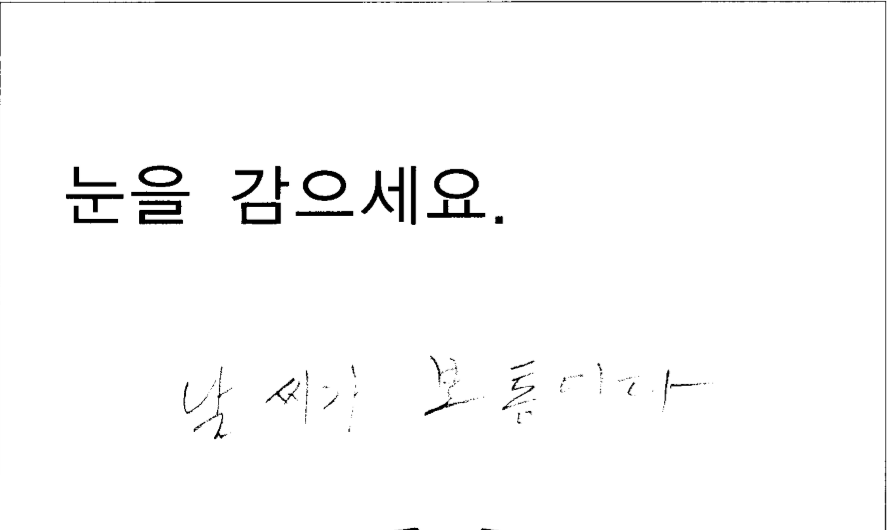 눈을 감으세요.
날씨가 보통이다